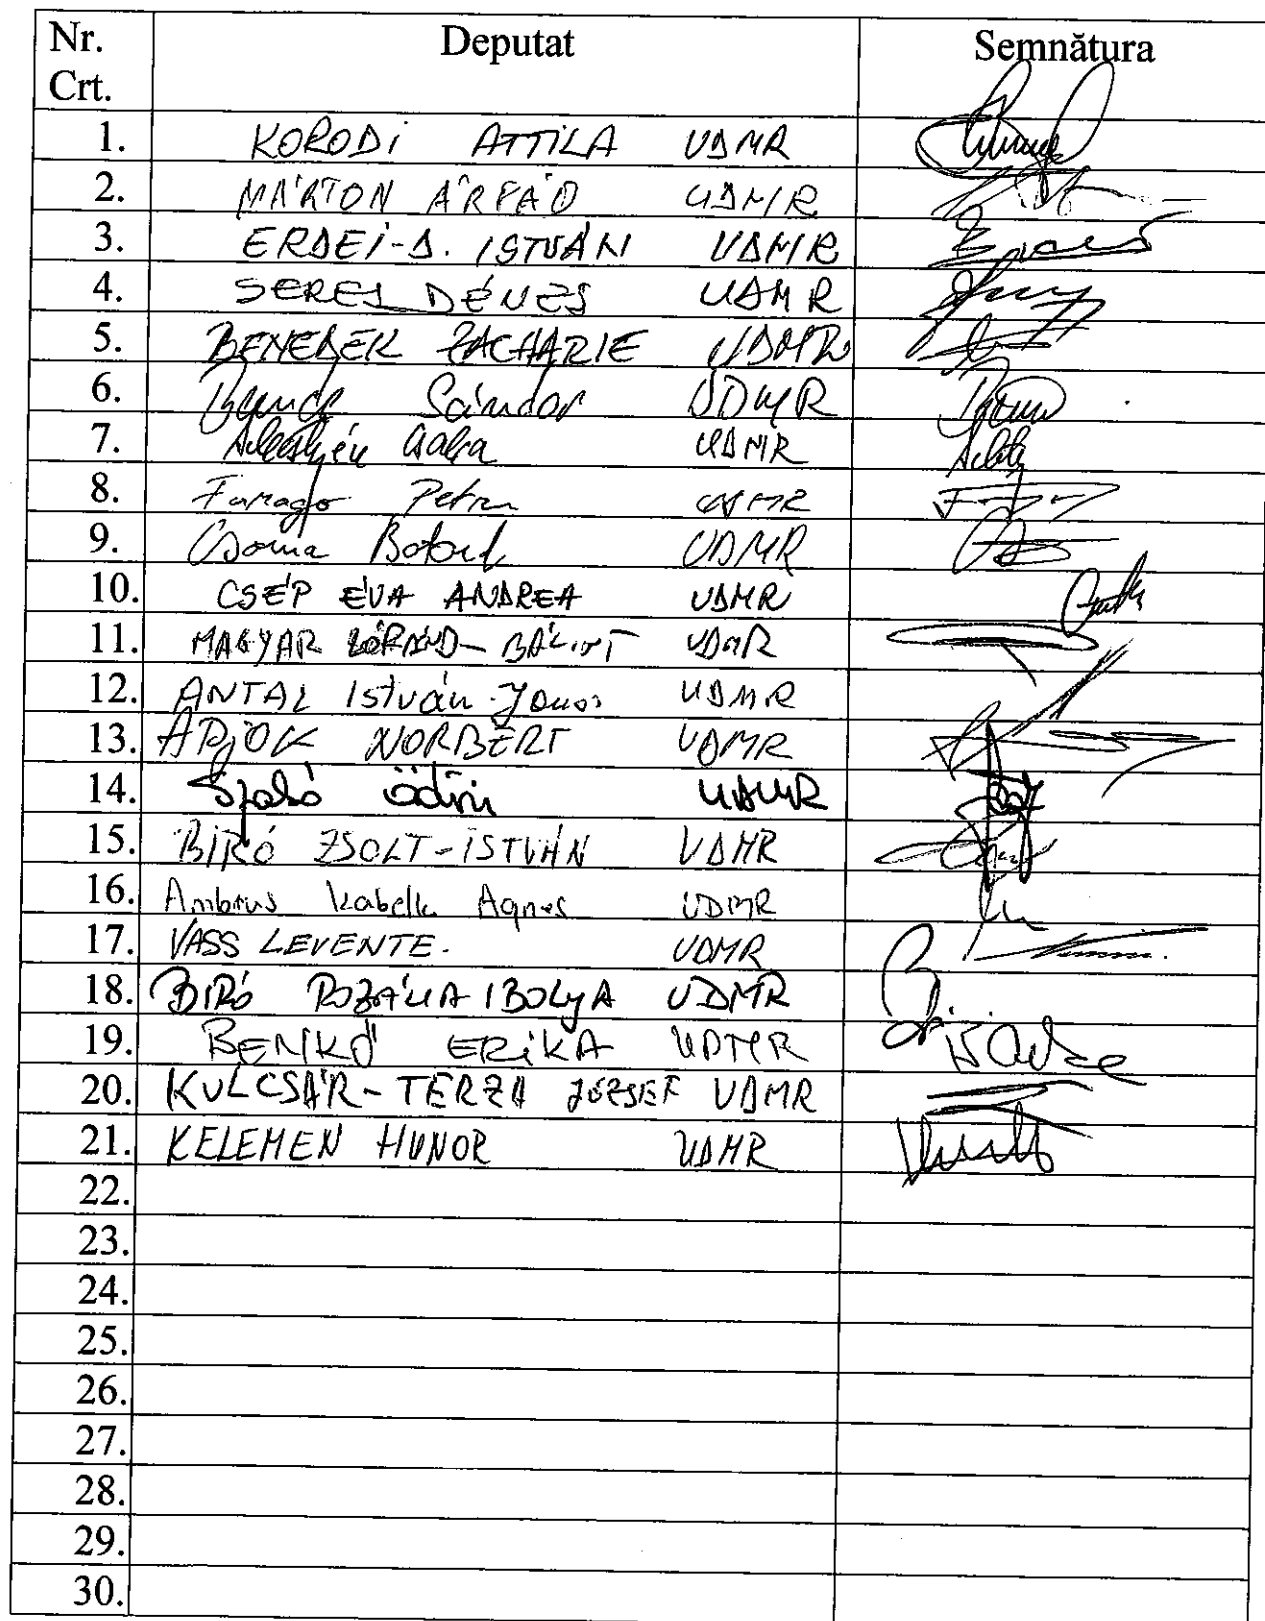 Nr. Crt. Deputat Semnătura
1. KORODi ATTiLA UDMR
2. MÁRTON ÁRPÁD UDMR
3. ERDEi-D. ISTVÁN UDMR
4. SERES DÉNES UDMR
5. BENEDEK ZACHARIE UDMR
6. Bende Sándor UDMR
7. Sebestyén Csaba UDMR
8. Farago Petru UDMR
9. Csoma Botond UDMR
10. CSÉP ÉVA ANDREA UDMR
11. MAGYAR LÓRÁND-BÁLINT UDMR
12. ANTAL István-János UDMR
13. APJOK NORBERT UDMR
14. Szabó Ödön UDMR
15. BIRÓ ZSOLT-iSTVÁN UDMR
16. Ambrus Izabella Agnes UDMR
17. VASS LEVENTE. UDMR
18. BIRÓ ROZÁLIA IBOLYA UDMR
19. BENKŐ ERiKA UDMR
20. KULCSÁR-TERZA JÓZSEF UDMR
21. KELEMEN HUNOR UDMR
22.
23.
24.
25.
26.
27.
28.
29.
30.